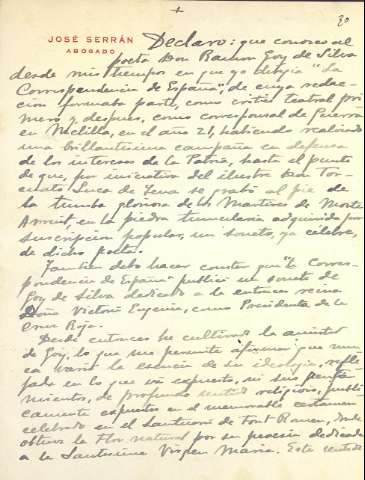 +
30
JOSÉ SERRÁN
ABOGADO
Declaro: que conozco al
poeta Don Ramón Goy de Silva
desde mis tiempos en que yo dirigía "La
Correspondencia de España", de cuya redac-
ción formaba parte, como crítico teatral pri-
mero y después, como corresponsal de Guerra
en Melilla, en el año 21, habiendo realizado
una brillantísima campaña en defensa
de los intereses de la Patria, hasta el punto
de que, por iniciativa del ilustre don Tor-
cuato Luca de Tena se grabó al pie de
la tumba gloriosa de los Mártires de Monte
Arruit, en la piedra tumularia adquirida por
suscripción popular, un soneto, ya célebre,
de dicho poeta.
También debo hacer constar que "La Corres-
pondencia de España" publicó un soneto de
Goy de Silva dedicado a la entonces reina
Doña Victoria Eugenia, como Presidenta de la
Cruz Roja.
Desde entonces he cultivado la amistad
de Goy, lo que me permite afirmar que nun-
ca varió la esencia de su ideología, refle-
jada en lo que va expuesto, ni sus senti-
mientos, de profundo sentido religioso, públi-
camente expuestos en el memorable certamen
celebrado en el Santuario de Font Romeu, donde
obtuvo la Flor natural por su poesía dedicada
a la Santísima Virgen María. Este sentido